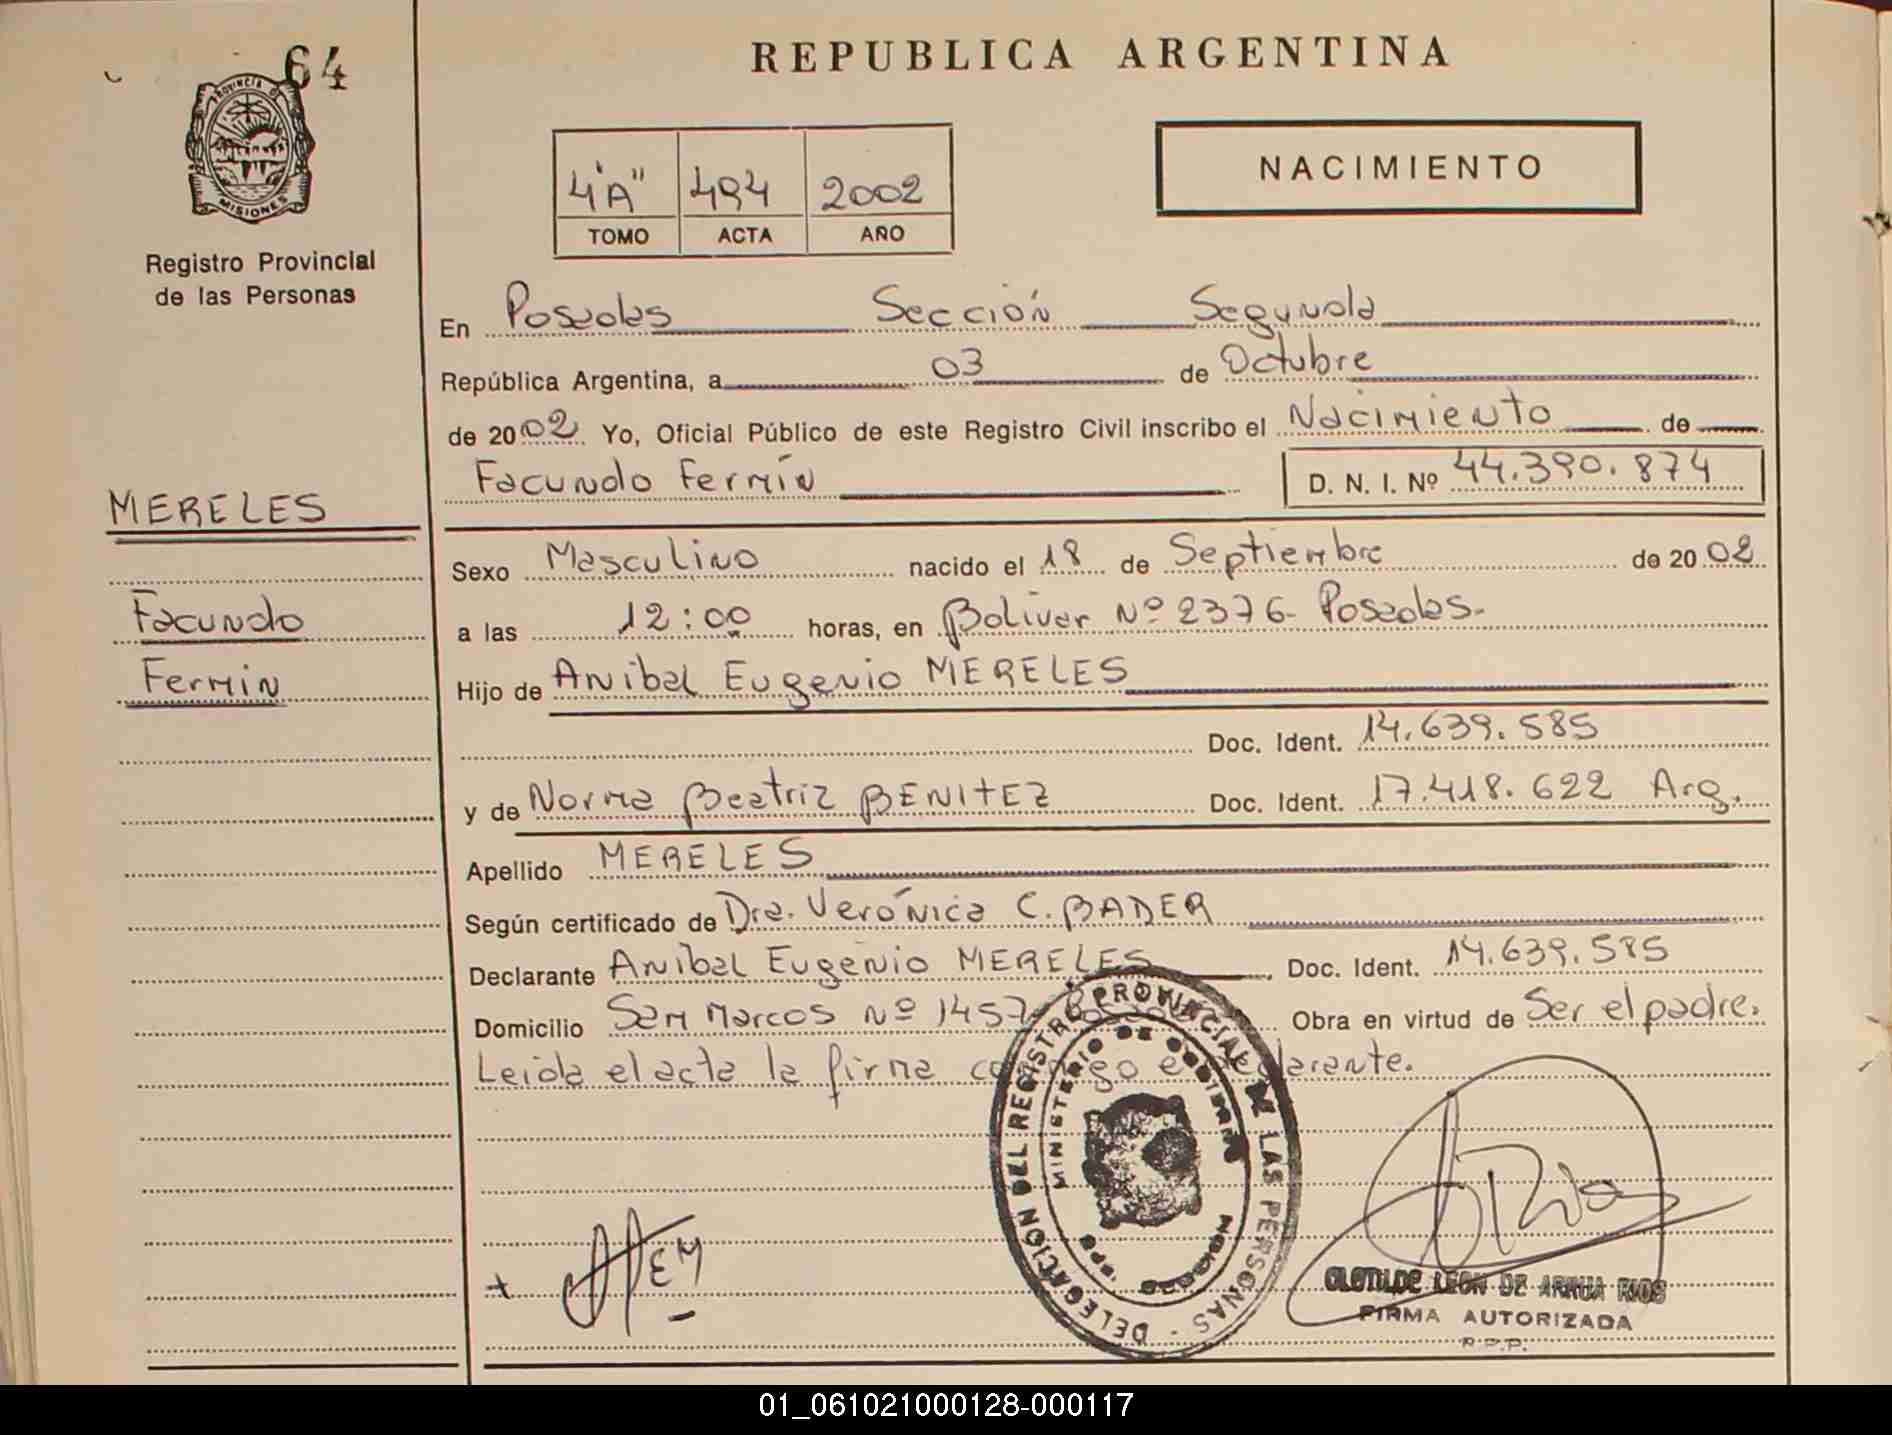 64
REPUBLICA ARGENTINA
PROVINCIA DE
MISIONES
4"A" 494 2002
TOMO ACTA AÑO
NACIMIENTO
Registro Provincial
de las Personas
En Posadas Sección Segunda
República Argentina, a 03 de Octubre
de 2002 Yo, Oficial Público de este Registro Civil inscribo el Nacimiento de
Facundo Fermín D. N. I. Nº 44.390.874
MERELES
Facundo
Fermin
Sexo Masculino nacido el 18 de Septiembre de 2002
a las 12:00 horas, en Bolivar Nº 2376- Posadas.
Hijo de Anibal Eugenio MERELES
Doc. Ident. 14.639.585
y de Norma Beatriz BENITEZ Doc. Ident. 17.418.622 Arg.
Apellido MERELES
Según certificado de Dra. Verónica C. BADER
Declarante Anibal Eugenio MERELES Doc. Ident. 14.639.585
Domicilio San Marcos Nº 1457 Obra en virtud de Ser el padre.
Leida el acta la firma conmigo el declarante.
DELEGACION DEL REGISTRO PROVINCIAL DE LAS PERSONAS -
MINISTERIO DE GOBIERNO
CLOTILDE LEON DE ARRUA RIOS
FIRMA AUTORIZADA
R.P.P.
01_061021000128-000117